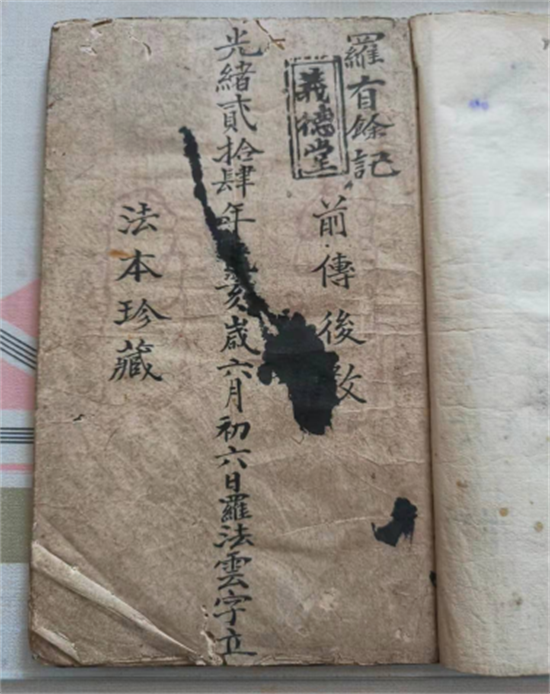 羅有餘記
義德堂
前傳後教
光緒貳拾肆年亥歲六月初六日羅法雲字立
法本珍藏